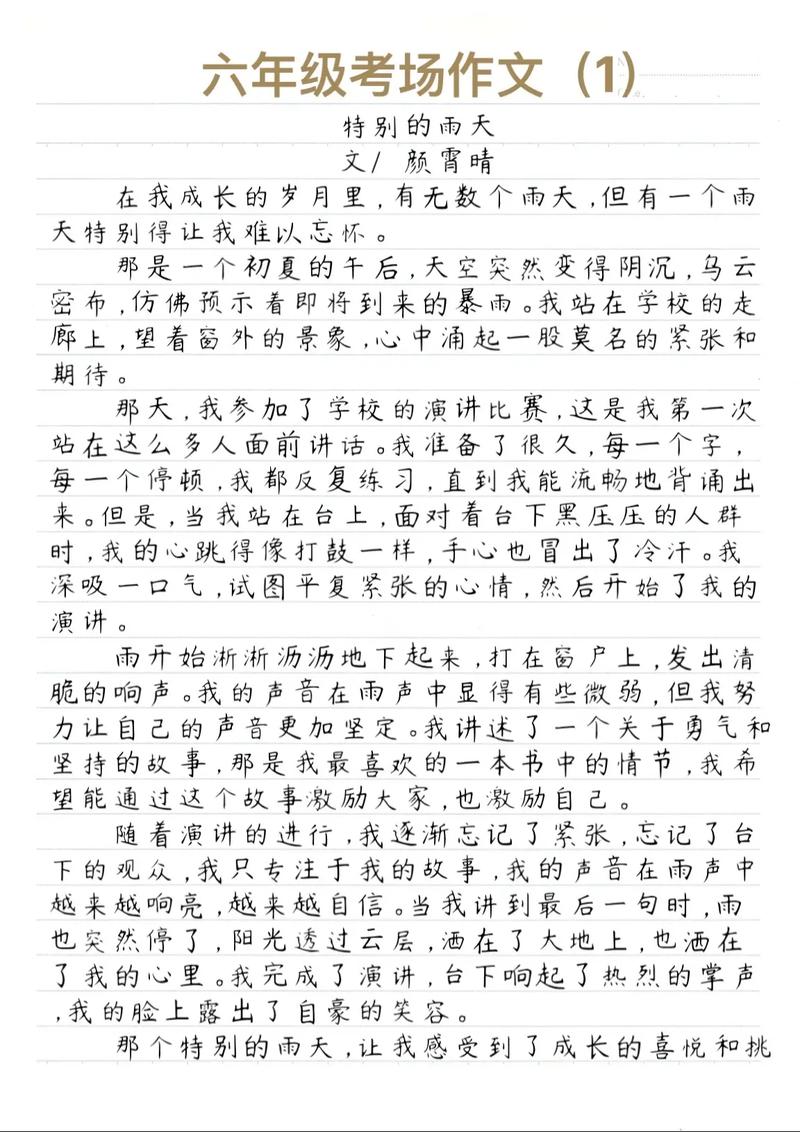 六年级考场作文（1）
特别的雨天
文/ 颜霄晴
在我成长的岁月里,有无数个雨天,但有一个雨
天特别得让我难以忘怀。
那是一个初夏的午后,天空突然变得阴沉,乌云
密布,仿佛预示着即将到来的暴雨。我站在学校的走
廊上,望着窗外的景象,心中涌起一股莫名的紧张和
期待。
那天,我参加了学校的演讲比赛,这是我第一次
站在这么多人面前讲话。我准备了很久,每一个字,
每一个停顿,我都反复练习,直到我能流畅地背诵出
来。但是,当我站在台上,面对着台下黑压压的人群
时,我的心跳得像打鼓一样,手心也冒出了冷汗。我
深吸一口气,试图平复紧张的心情,然后开始了我的
演讲。
雨开始淅淅沥沥地下起来,打在窗户上,发出清
脆的响声。我的声音在雨声中显得有些微弱,但我努
力让自己的声音更加坚定。我讲述了一个关于勇气和
坚持的故事,那是我最喜欢的一本书中的情节,我希
望能通过这个故事激励大家,也激励自己。
随着演讲的进行,我逐渐忘记了紧张,忘记了台
下的观众,我只专注于我的故事,我的声音在雨声中
越来越响亮,越来越自信。当我讲到最后一句时,雨
也突然停了,阳光透过云层,洒在了大地上,也洒在
了我的心里。我完成了演讲,台下响起了热烈的掌声
,我的脸上露出了自豪的笑容。
那个特别的雨天,让我感受到了成长的喜悦和挑